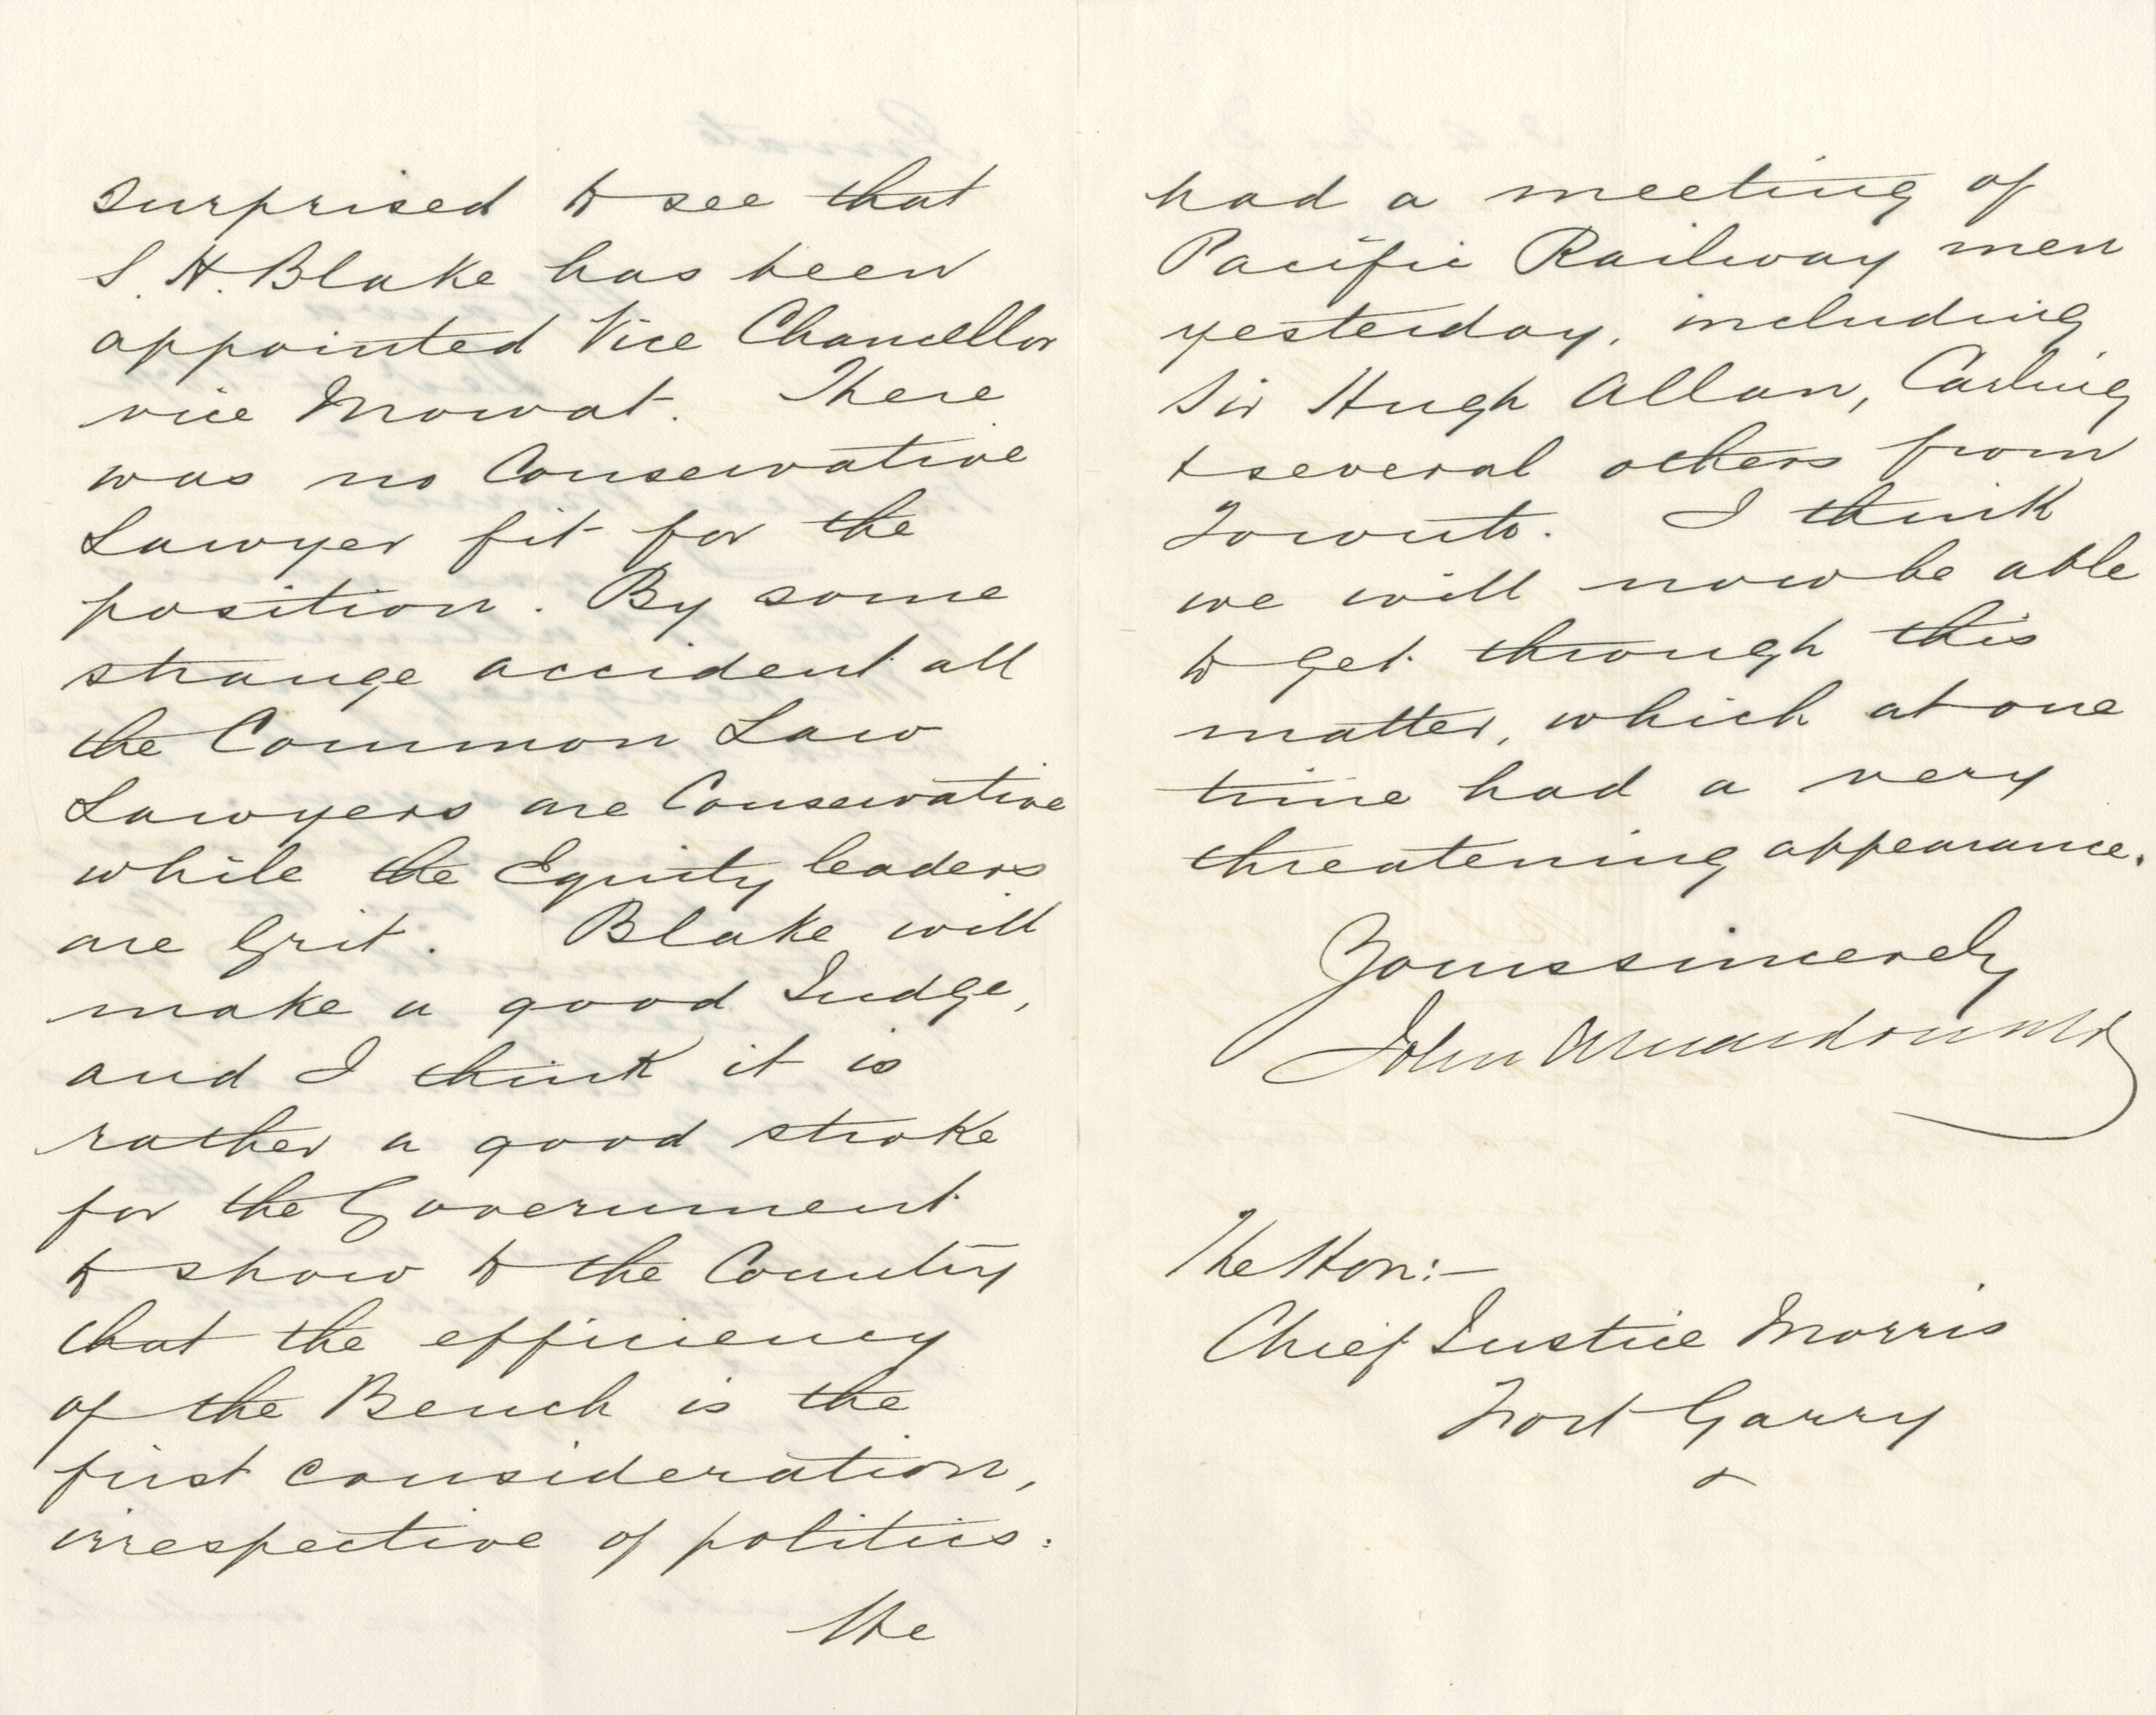 surprised to see that
S. H. Blake has been
appointed Vice Chancellor
vice Mowat. There
was no Conservative
Lawyer fit for the
position. By some
strange accident all
the Common Law
Lawyers are Conservative
while the Equity leaders
are Grit. Blake will
make a good Judge,
and I think it is
rather a good stroke
for the Government
to show to the Country
that the efficiency
of the Bench is the
first consideration,
irrespective of politics.
We
had a meeting of
Pacific Railway men
yesterday, including
Sir Hugh Allan, Carling
& several others from
Toronto. I think
we will now be able
to get through this
matter, which at one
time had a very
threatening appearance.
Yours sincerely
John A Macdonald
The Hon:—
Chief Justice Morris
Fort Garry